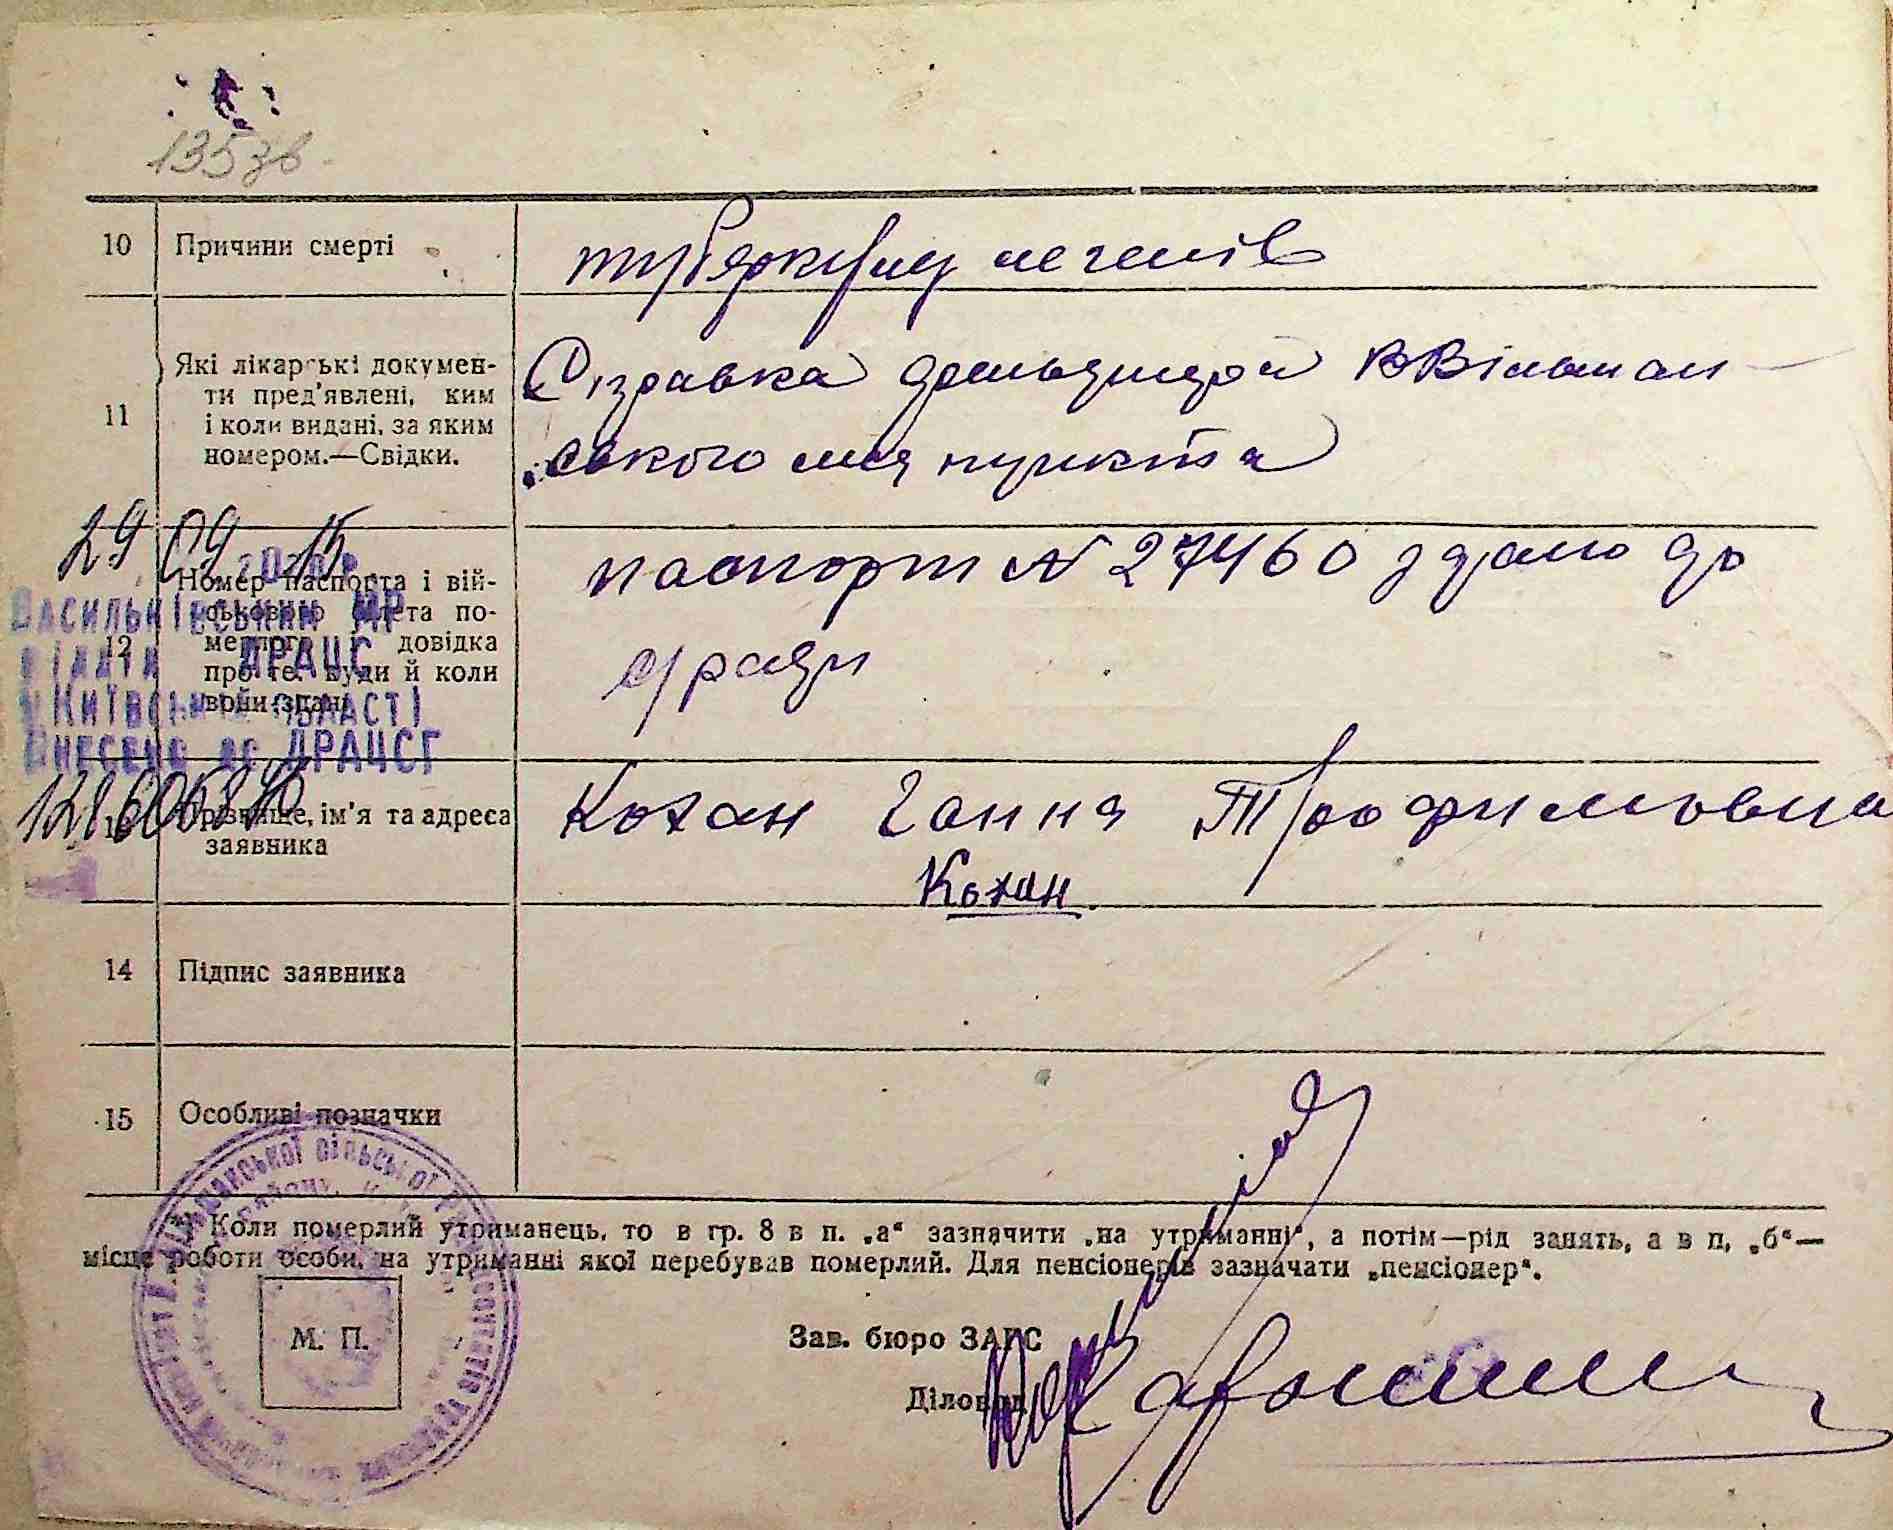 135зв
10 Причини смерті
туберкульоз легенів
11 Які лікарські докумен-
ти пред'явлені, ким
і коли видані, за яким
номером.—Свідки.
Справка фельдшера ВВільшан-
ського мед пункта
29 09 15
12 Номер паспорта і вій-
ськового білета по-
мерлого і довідка
про те, куди й коли
вони здані
паспорт № 27460 здано до
с/ради
Васильківський МР
відділ ДРАЦС
у Київській області
Внесено до ДРАЦСГ
13 Прізвище, ім'я та адреса
заявника
Кохан Ганна Трофимовна
Кохан.
14 Підпис заявника
15 Особливі позначки
Коли померлий утриманець, то в гр. 8 в п. „а“ зазначити „на утриманні“, а потім—рід занять, а в п. „б“—
місце роботи особи, на утриманні якої перебував померлий. Для пенсіонерів зазначати „пенсіонер“.
М. П.
Зав. бюро ЗАГС
Діловод